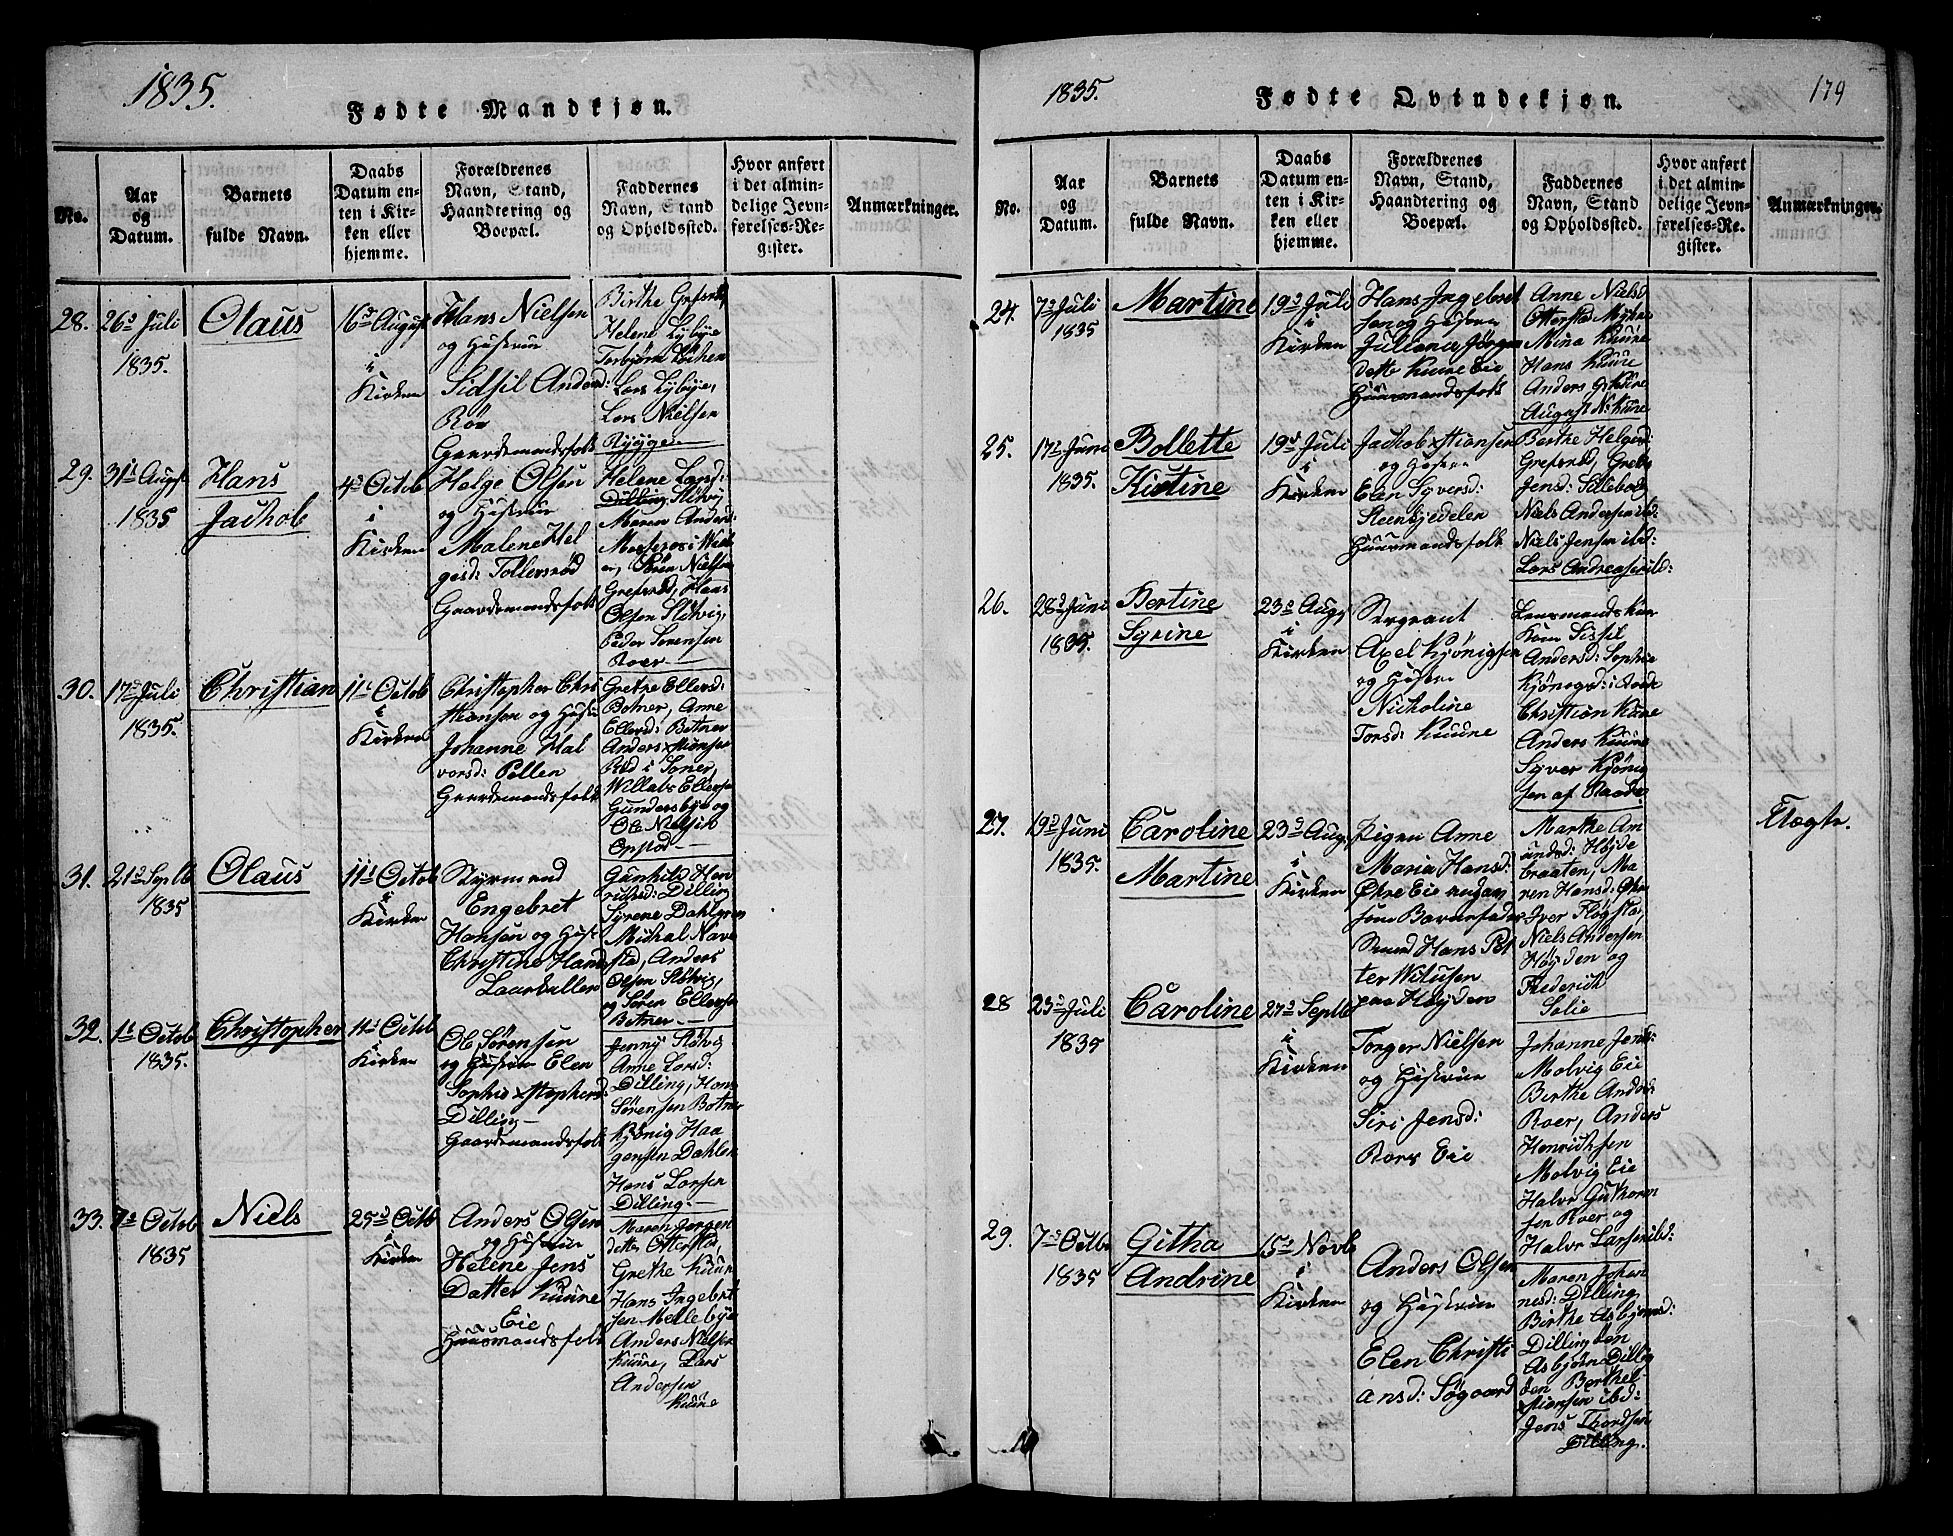 1835.
Fødte Mandkjøn.
No.
Aar
og
Datum.
Barnets
fulde Navn.
Daabs
Datum en-
ten i Kir-
ken eller
hjemme.
Forældrenes
Navn, Stand,
Haandtering og
Boepæl.
Faddernes
Navn, Stand
og Opholdssted.
Hvor anført
i det almin-
delige Jevn-
førelses-Re-
gister.
Anmærkninger.
28.
26 Juli
1835.
Olaus
16 August
i
Kirken
Hans Nielsen
og Hustrue
Sidsil Anders:
Röer
Gaardemandsfolk
Birthe Grefsrø
Helene Lybye
Torbjørn Løken
Lars Lybye,
Lars Nielsen
Rygge.
29.
31 Augst
1835
Hans
Jachob
4 Octob
i
Kirken
Helge Olsen
og Hustrue
Malene Hel
gesd: Tollersrød
Gaardemandsfolk
Helene Larsd:
Dilling, Støtvig
Maren Andersd:
Mosseros i Waal
er, Søren Nielsen
Grefsrød, Hans
Olsen Støtvig,
Peder Sørensen
Roer
30.
17 Juli
1835.
Christian
11 Octob
i
Kirken
Christopher Chri
stiansen og Hustru
Johanne Hal
vorsd: Pollen
Gaardemandsfolk
Grethe Ellersd:
Botner, Anne
Ellersd: Botner
Anders xstiansen
Rød i Soner,
Willads Ellersen
Gundersbye og
Ole Nielsen
31.
21 Septb
1835
Olaus
11 Octob
i
Kirken
Styrmand
Engebret
Hansen og Hust
Christine Hansd
Laarkullen
Gunhild Hen
richsd: Dilling
Syrene Dahlgren
Michal Nave
stad, Anders
Olsen Støtvig,
og Søren Ellersen
Botner
32.
1 Octob
1835.
Christopher
11 Octob
i
Kirken
Ole Sørensen
og Hustrue Elen
Sophie xstophersd:
Dilling
Gaardemandsfolk
Jenny Støtvig
Anne Larsd:
Dilling, Hans
Sørensen Botner
Kjönig Haa
gensen Dahlen
Hans Larsen
Dilling.
33.
7 Octob
1835
Niels
25 Octb
i
Kirken
Anders Olsen
og Hustrue
Helene Jens
Datter Kuüne
Eie
Huusmandsfolk
Maren Jørgen
datter Ottersta,
Grethe Kuüne
Hans Ingebret
sen Mellebye
Anders Nielsen
Kuüne, Lars
Andersen
Kuüne
1835.
Fødte Qvindekjøn.
179
No.
Aar
og
Datum.
Barnets
fulde Navn.
Daabs
Datum en-
ten i Kir-
ken eller
hjemme.
Forældrenes
Navn, Stand,
Haandtering og
Boepæl.
Faddernes
Navn, Stand
og Opholdssted.
Hvor anført
i det almin-
delige Jevn-
førelses-Re-
gister.
Anmærkninger.
24.
7 Juli
1835
Martine
19 Juli
i
Kirken
Hans Ingebret
sen og Hustrue
Juliane Jörgen
datt Kuüne Eie
Huusmandsfolk
Anne Nielsd
Ottersta
Mina Kuüne
Hans Kuüne
Anders Kuüne
August N: Kuüne
25.
17 Juni
1835.
Bollette
Kistine
19 Juli
i
Kirken
Jachob xstiansen
og Hustrue
Elen Syversd:
Steensjedelen
Huusmandsfolk
Berthe Helgesd:
Grefsrød, Grethe
Jensd: Sillebæk
Niels Andersen ibd:
Niels Jensen ibd:
Lars Andreasen ibd:
26.
28 Juni
1835.
Bertine
Syrine
23 Aug,
i
Kirken
Sergeant
Axel Kjönigsen
og Hustrue
Nicholine
Torsd: Kuüne
Lensmands
Kone Sissil
Andersd: Sophie
Kjönigsd: i Raade
Christian Kuüne
Anders Kuüne
Syver Kjönig
sen af Raade
27.
19 Juni
1835.
Caroline
Martine
23 Aug,
i
Kirken
Pigen Anne
Maria Hansd:
Økre Eie
som Barnefader
Hans Pet
ter Wilusen
paa Høyden
Marthe Am
undsd: Høyde
braaten, Ma
ren Hansd: Økre
Iver Fløgsta,
Niels Andersen
Høyden og
Frederich
Solie
Uægte.
28
23 Juli
1835
Caroline
27 Septb
i
Kirken
Torger Nielsen
og Hustrue
Siri Jensd:
Rors Eie
Johanne Jensd:
Molvig Eie
Berthe Andersd:
Roer, Anders
Henrichsen
Molvig Eie
Halvr Guthorm
sen Roer og
Halvr Larsen ibd:
29.
7 Octb
1835
Githa
Andrine
15 Novb
i
Kirken
Anders Olsen
og Hustrue
Elen Christi
ansd: Søgaard
Maren Johan
nesd: Dilling
Birthe Asbjørnsd:
Dillingøen
Asbjørn Dilling
øen Berthel
xstiansen ibd:
Jens Thordsen
Dilling.